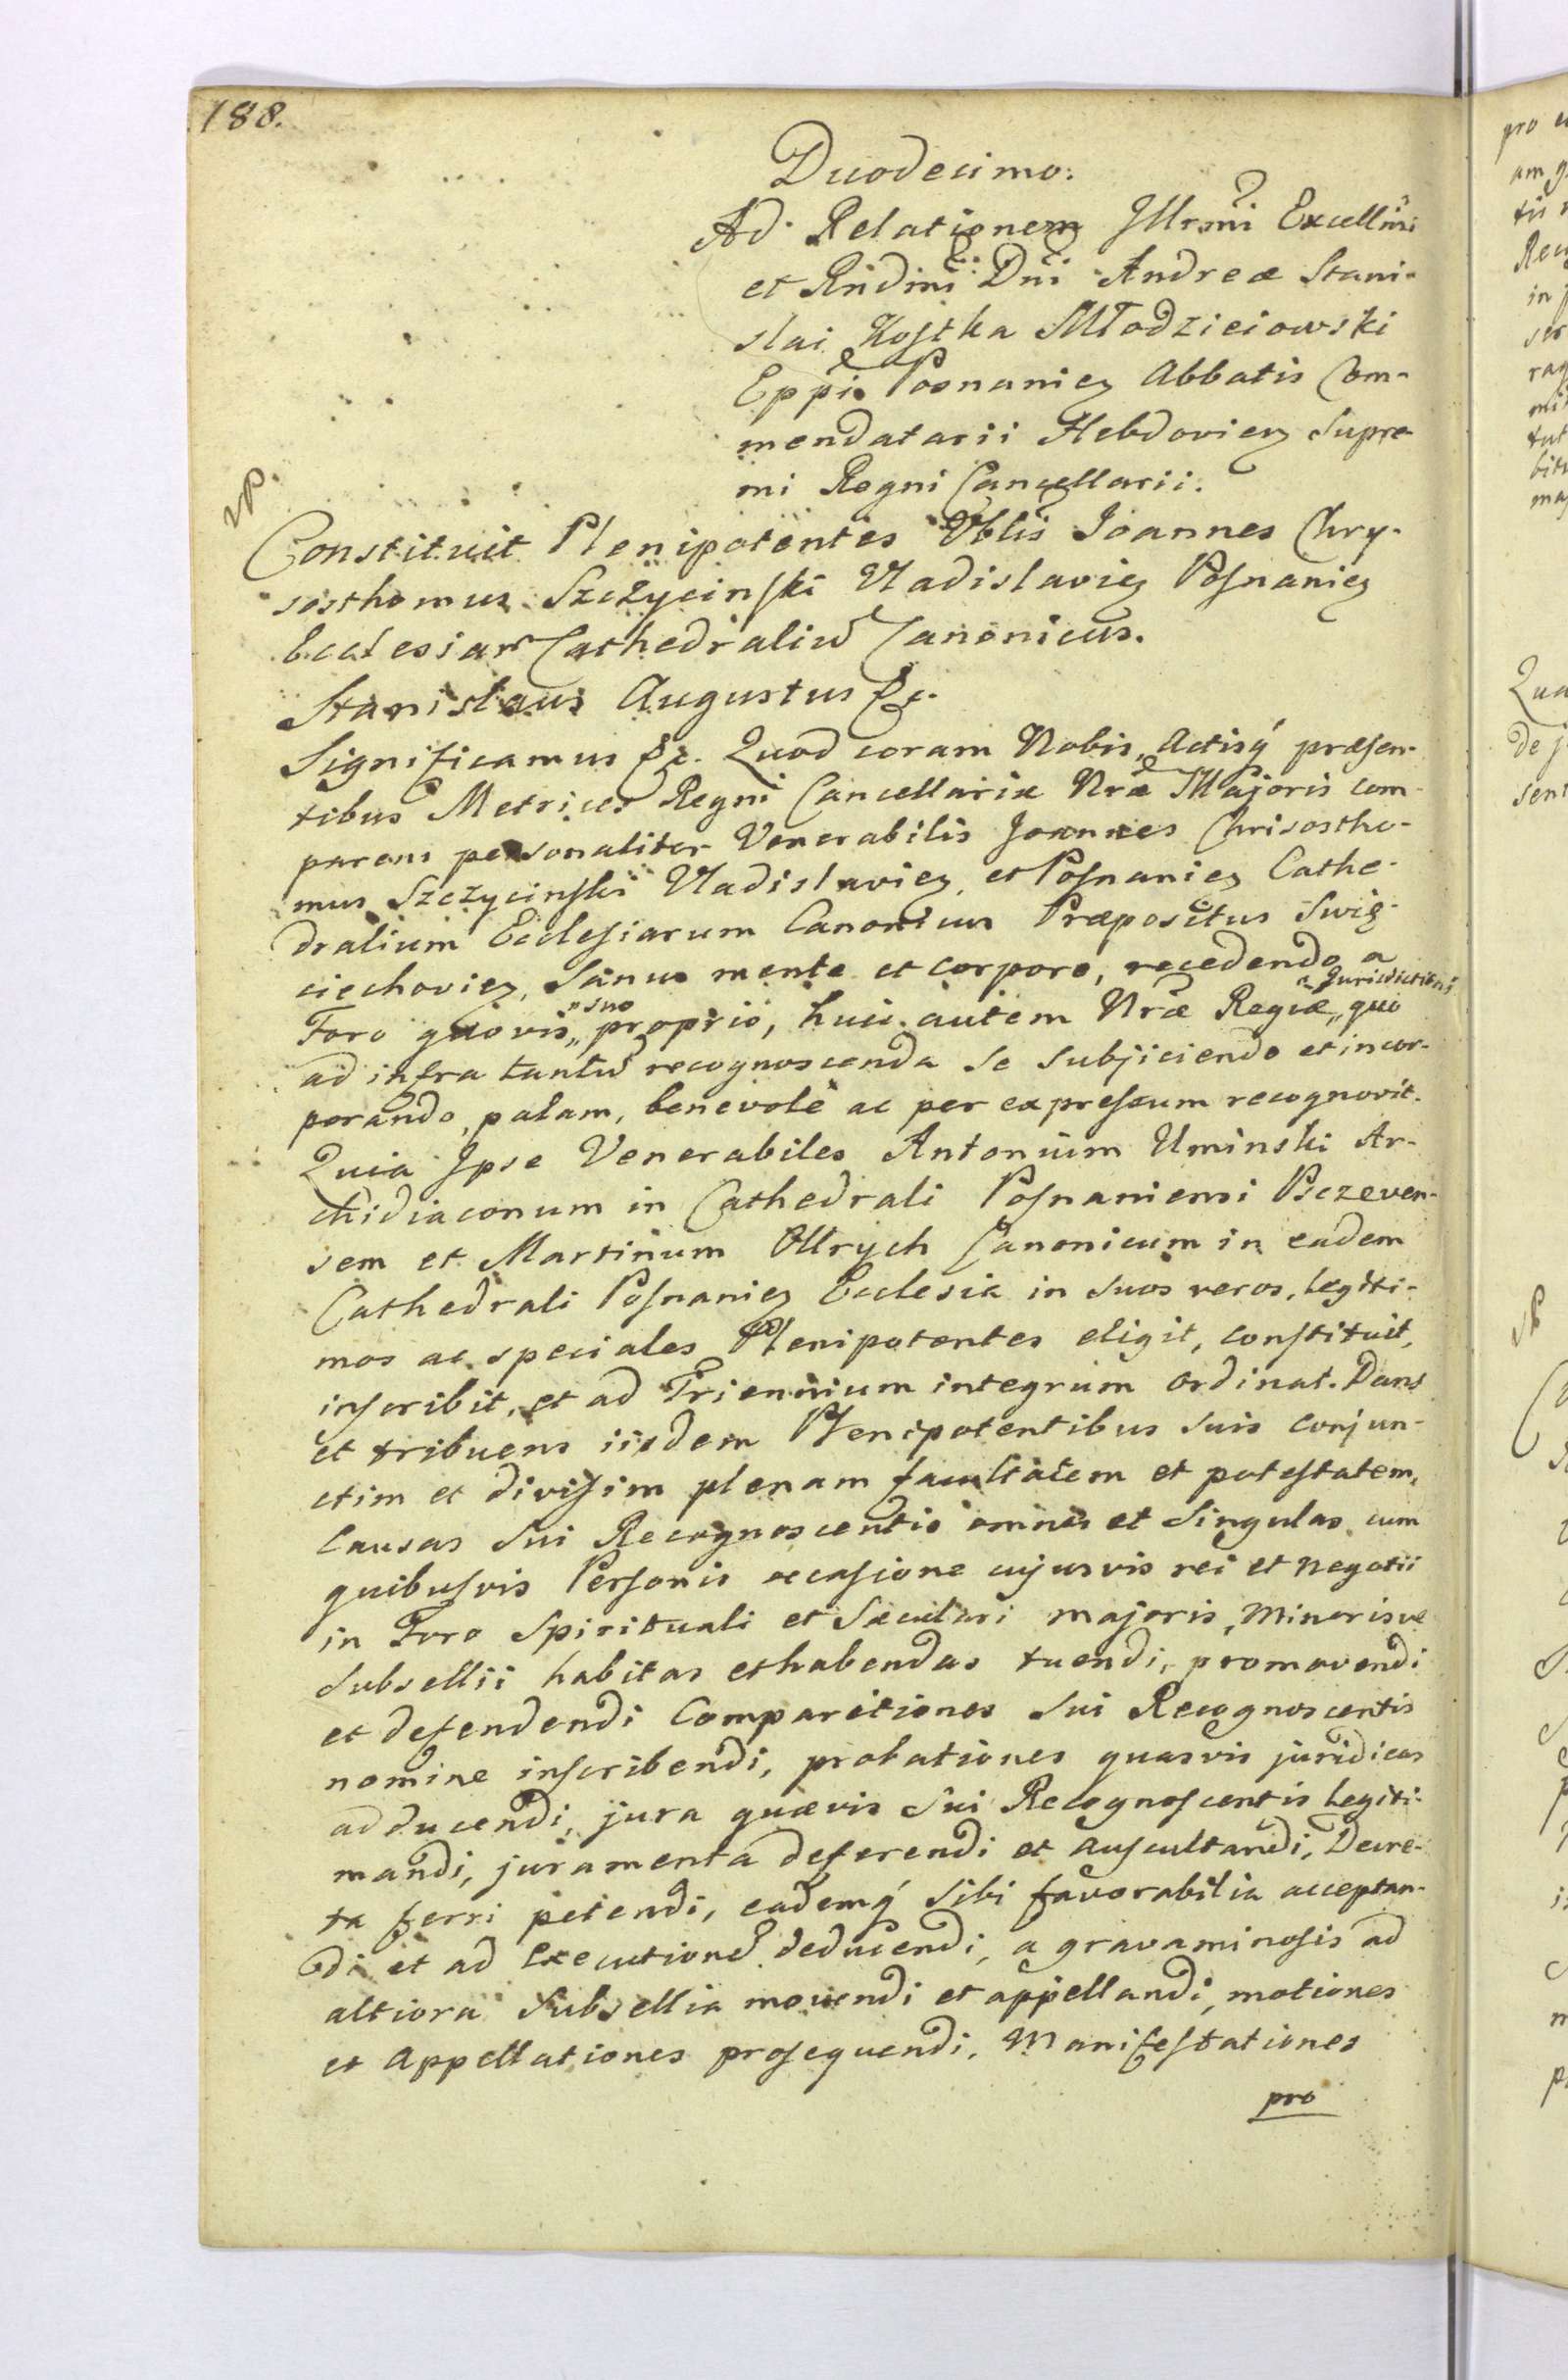 188.
Duodecimo.
Ad Relationem Illrmi Excellmi
et Rndmi Dni Andreæ Stani-
slai Kostka Młodzieiowski
Eppi Posnanien Abbatis Com-
mendatarii Hebdovien Supre-
mi Regni Cancellarii.
Constituit Plenipotentes Vblis Joannes Chry-
sosthomus Szczycinski Vladislavien Posnanien
Ecclesiar Cathedraliu Canonicus.
Stanislaus Augustus &c.
Significamus &c. Quod coram Nobis, Actisq́ præsen-
tibus Metrices Regni Cancellariæ Nræ Majoris com-
parens personaliter Venerabilis Joannes Chrisostho-
mus Szczycinski Vladislavien et Posnanien Cathe-
dralium Ecclesiarum Canonicus Præpositus Swię-
ciechovien, Sanus mente et corpore, recedendo a
Foro quovis „suo proprio, huic autem Nræ Regiæ „Jurisdictioni quo
ad infra tantu recognoscenda se subjiciendo et incor-
porando, palam, benevole ac per expressum recognovit.
Quia Ipse Venerabiles Antonium Uminski Ar-
chidiaconum in Cathedrali Posnaniensi Pszeven-
sem et Martinum Ollrych Canonicum in eadem
Cathedrali Posnanien Ecclesia in suos veros, legiti-
mos ac speciales Plenipotentes eligit, constituit,
inscribit, et ad Triennium integrum ordinat. Dans
et tribuens iisdem Plenipotentibus suis conjun-
ctim et divisim plenam facultatem et potestatem,
Causas sui Recognoscentis omnes et singulas cum
quibusvis Personis occasione cujusvis rei et negotii
in Foro Spirituali et Sæculari majoris, Minorisve
Subsellii habitas et habendas tuendi, promovendi
et defendendi Comparitiones sui Recognoscentis
nomine inscribendi, probationes quasvis juridicas
adducendi, jura quævis sui Recognoscentis legiti-
mandi, juramenta deferendi et auscultandi, Decre-
ta ferri petendi, eademq́ sibi favorabilia acceptan-
di et ad Executione deducendi, a gravaminosis ad
altiora Subsellia movendi et appellandi, motiones
et Appellationes prosequendi, Manifestationes
pro